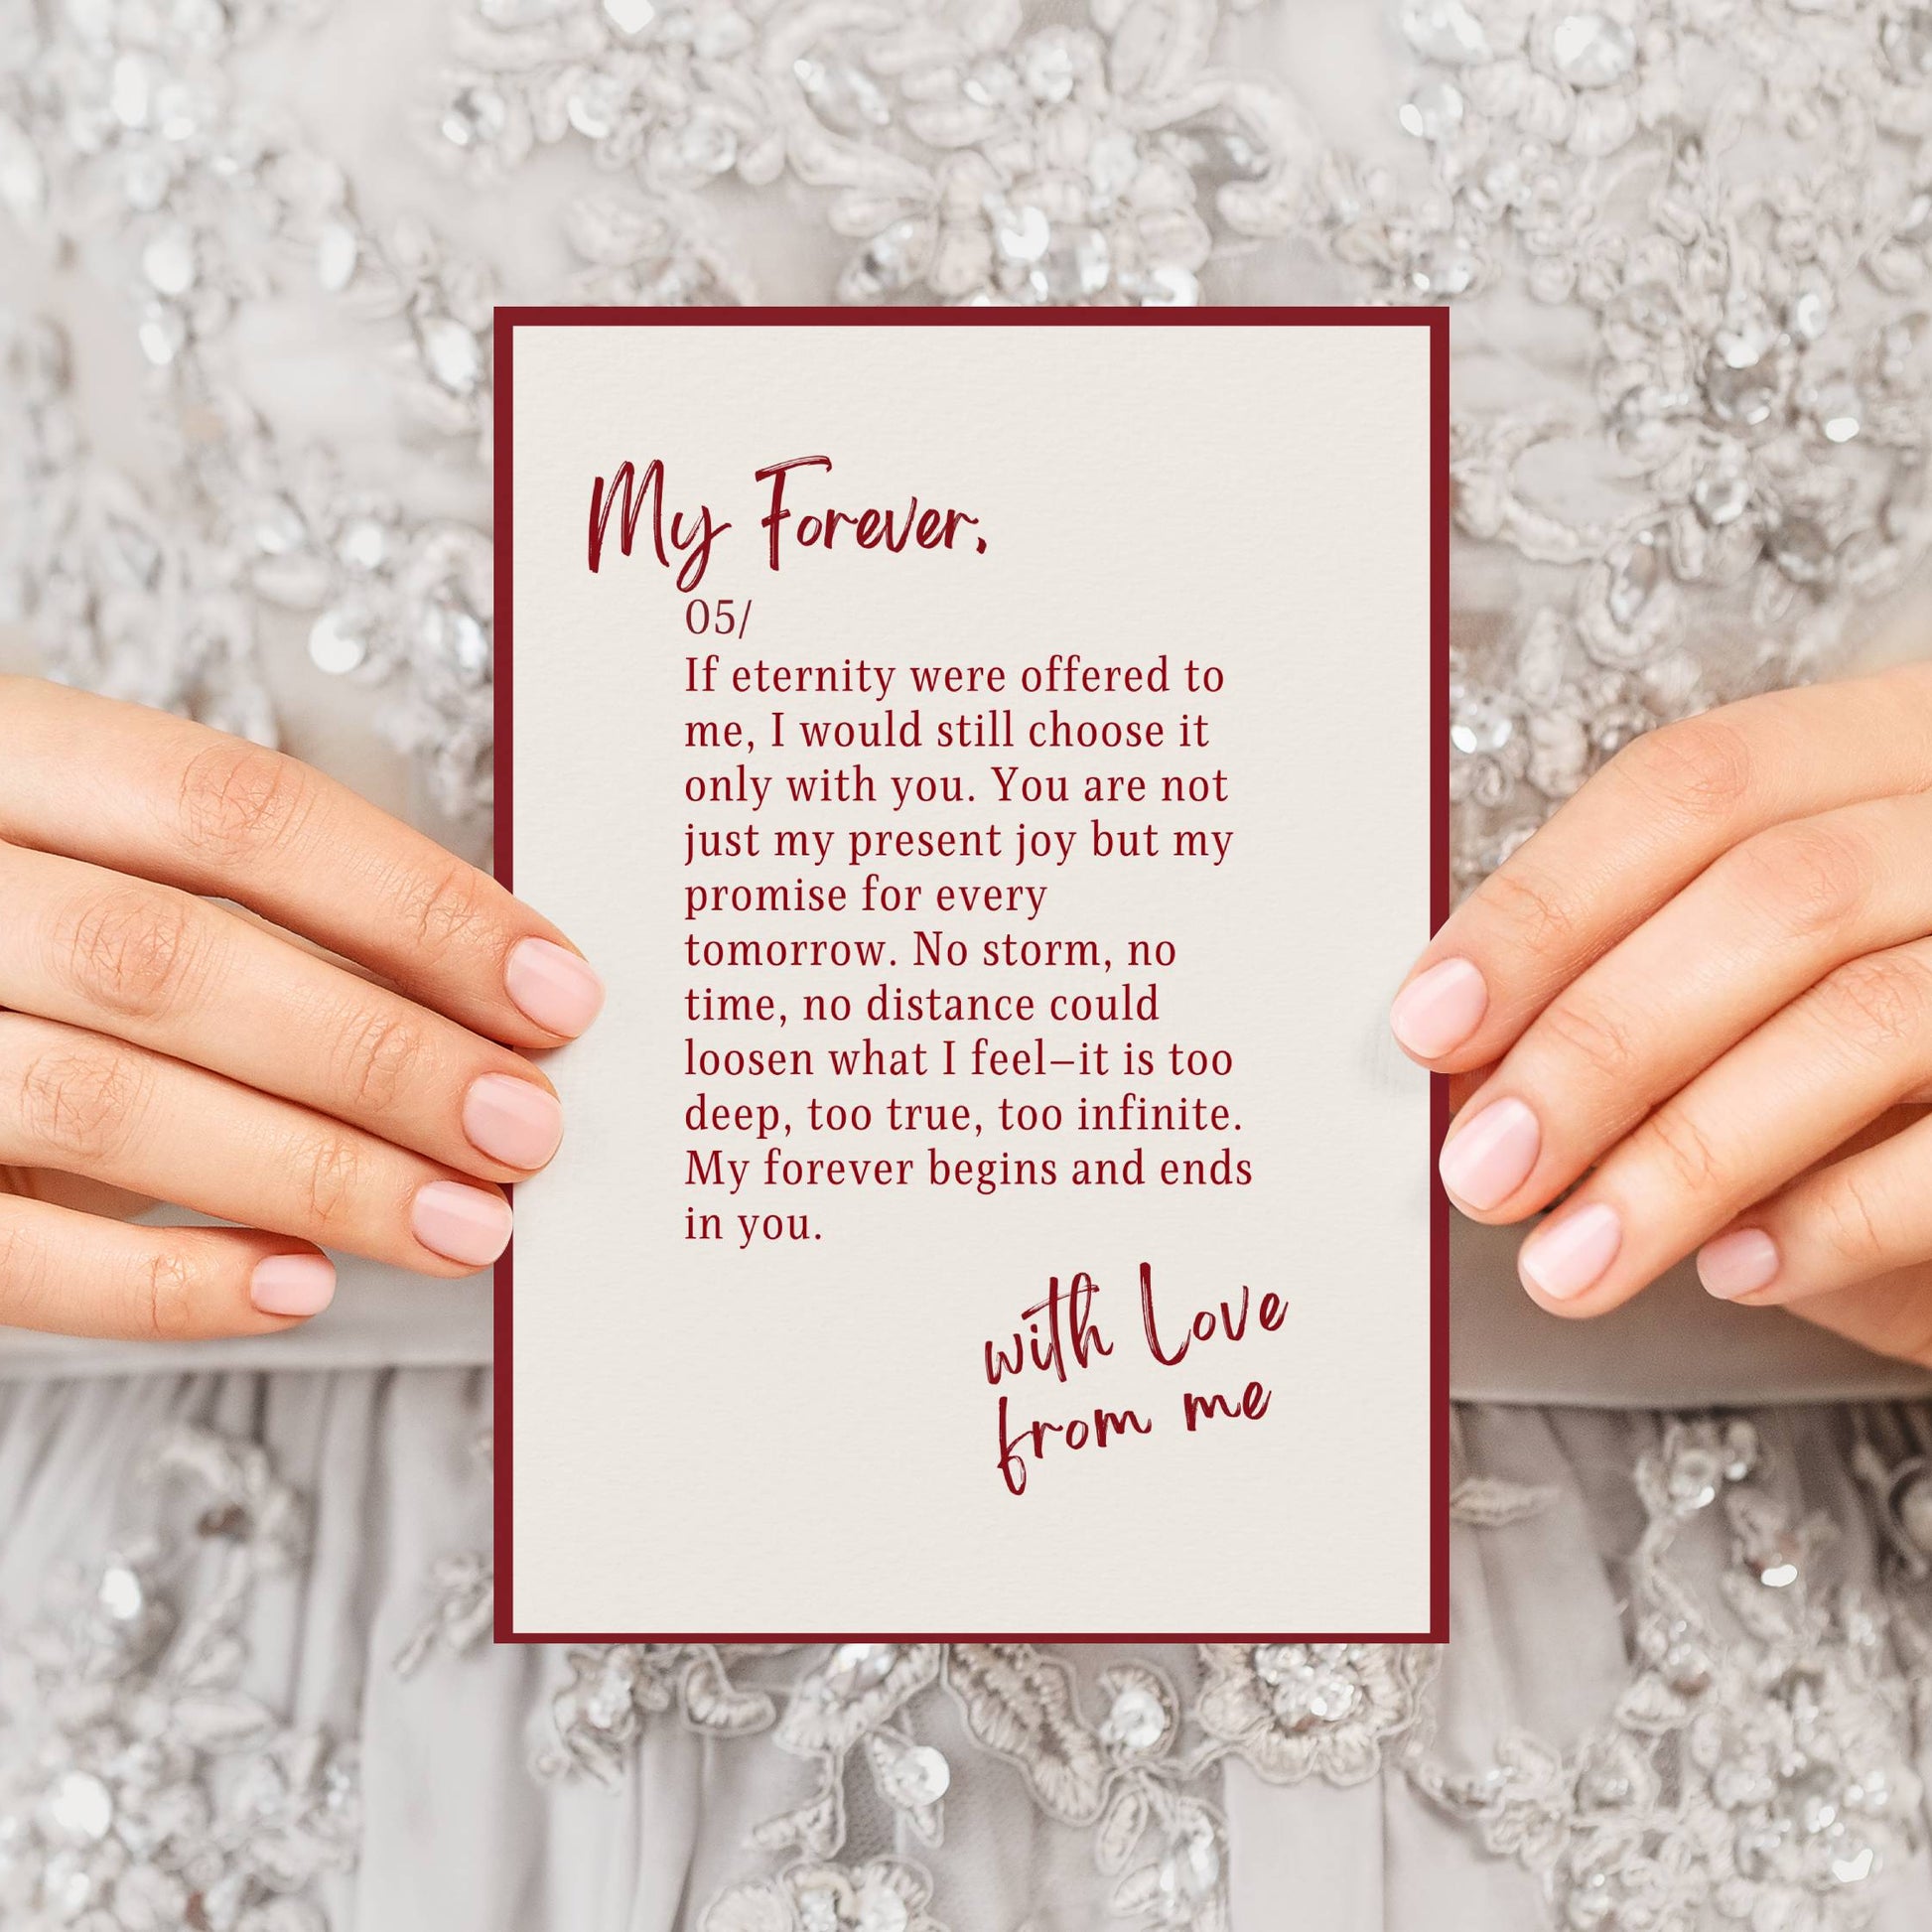 My Forever,
05/
If eternity were offered to
me, I would still choose it
only with you. You are not
just my present joy but my
promise for every
tomorrow. No storm, no
time, no distance could
loosen what I feel—it is too
deep, too true, too infinite.
My forever begins and ends
in you.
with Love
from me